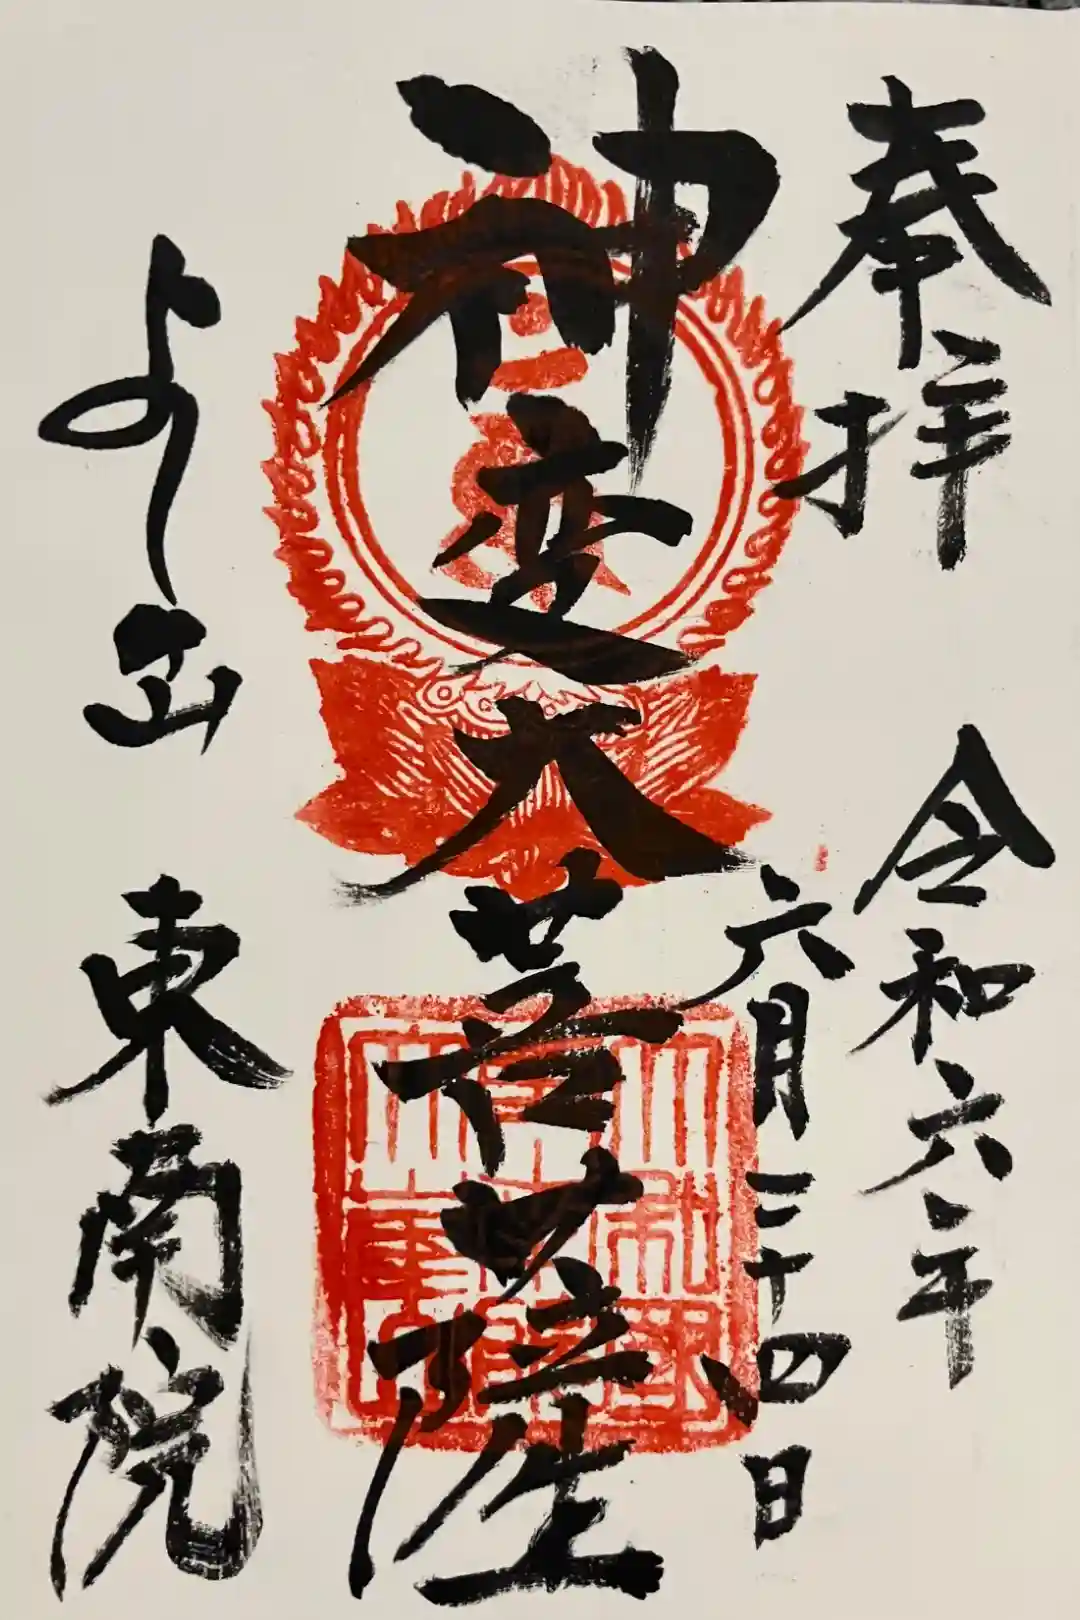 奉拝
令和六年
六月二十四日
神変大菩薩
よしの山 東南院